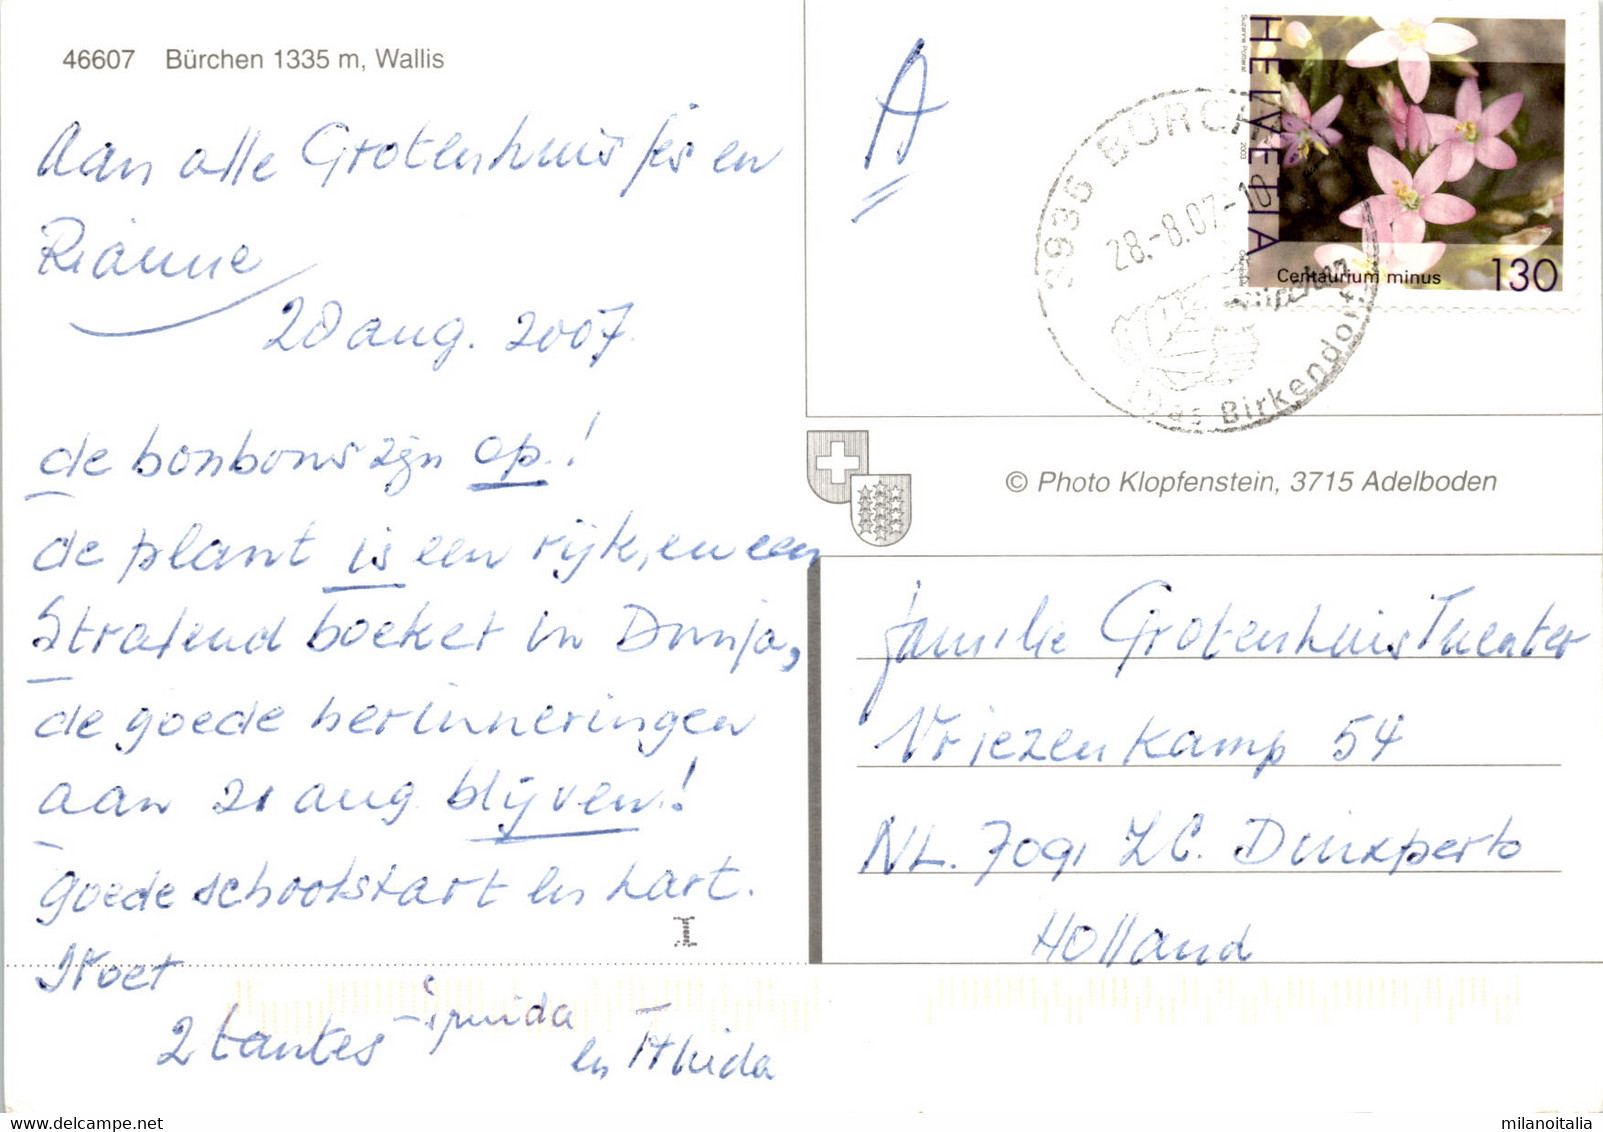 46607 Bürchen 1335 m, Wallis
Aan alle Grotenhuisjes en
Rianne
20 aug. 2007
de bonbons zijn op!
de plant is een rijke, en een
Stralend boeket in Dunja,
de goede herinneringen
aan 21 aug blijven!
goede schoolstart en hart.
Groet
2 tantes
en
A
HELVETIA
Suzanne Potterat
2003
Centaurium minus
130
3935 BÜRCHEN
28.-8.07-10
Bürchen
Das Birkendorf
© Photo Klopfenstein, 3715 Adelboden
familie Grotenhuis Theater
Vriezenkamp 54
NL. 7091 ZC. Dinxperlo
Holland
delcampe.net
milanoitalia